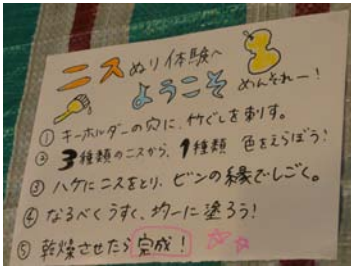 ニスぬり体験へ
ようこそ めんそれー!
① キーホルダーの穴に、竹ぐしを刺す。
② 3種類のニスから、1種類 色をえらぼう!
③ ハケにニスをとり、ビンの縁でしごく。
④ なるべくうすく、均一に塗ろう!
⑤ 乾燥させたら完成!